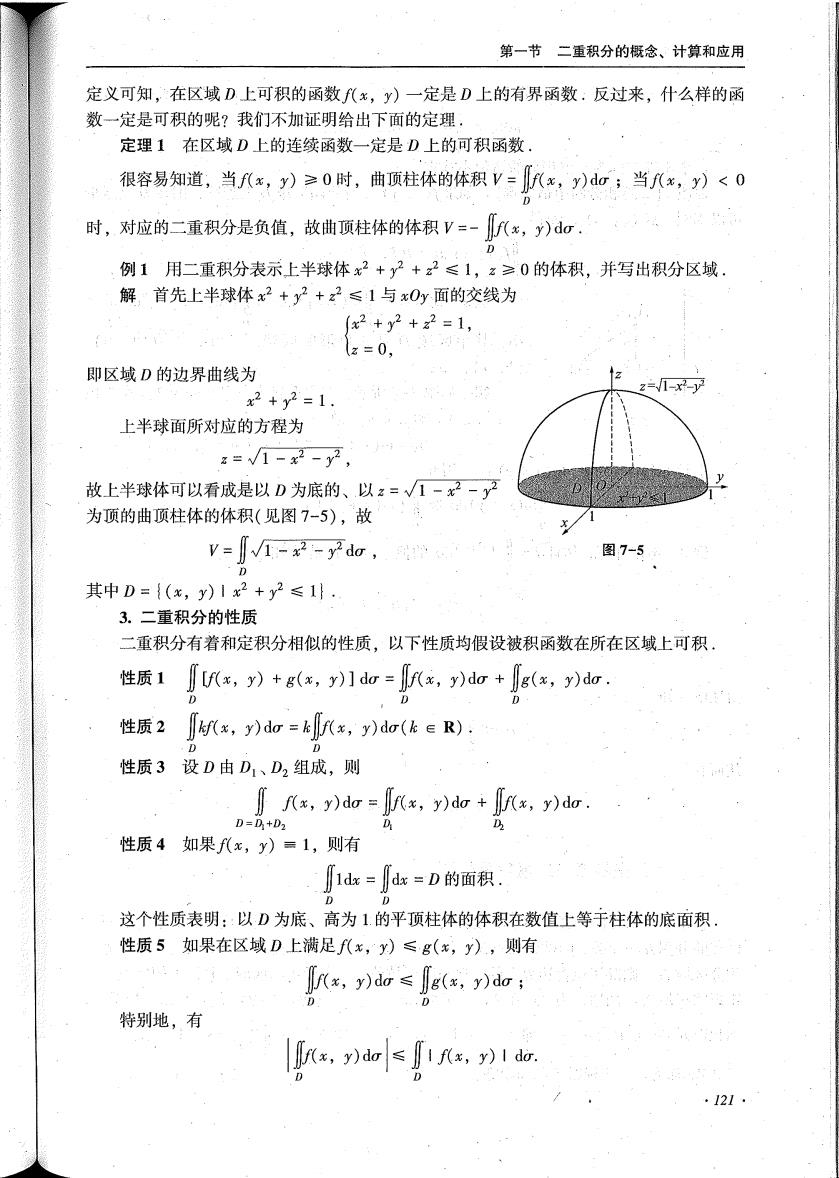 第一节 二重积分的概念、计算和应用
定义可知，在区域 D 上可积的函数 f(x，y) 一定是 D 上的有界函数．反过来，什么样的函
数一定是可积的呢？我们不加证明给出下面的定理．
定理 1 在区域 D 上的连续函数一定是 D 上的可积函数．
很容易知道，当 f(x，y) ≥ 0 时，曲顶柱体的体积 V = ∬_D f(x，y)dσ；当 f(x，y) < 0
时，对应的二重积分是负值，故曲顶柱体的体积 V = - ∬_D f(x，y)dσ．
例 1 用二重积分表示上半球体 x² + y² + z² ≤ 1，z ≥ 0 的体积，并写出积分区域．
解 首先上半球体 x² + y² + z² ≤ 1 与 xOy 面的交线为
{x² + y² + z² = 1，
z = 0，
即区域 D 的边界曲线为
x² + y² = 1．
上半球面所对应的方程为
z = √(1 - x² - y²)，
故上半球体可以看成是以 D 为底的、以 z = √(1 - x² - y²)
为顶的曲顶柱体的体积(见图 7-5)，故
V = ∬_D √(1 - x² - y²) dσ，
其中 D = {(x，y) | x² + y² ≤ 1}．
z
z=√(1-x²-y²)
D
O
x²+y²≤1
y
1
x
1
图 7-5
3. 二重积分的性质
二重积分有着和定积分相似的性质，以下性质均假设被积函数在所在区域上可积．
性质 1 ∬_D [f(x，y) + g(x，y)] dσ = ∬_D f(x，y)dσ + ∬_D g(x，y)dσ．
性质 2 ∬_D kf(x，y)dσ = k∬_D f(x，y)dσ(k ∈ R)．
性质 3 设 D 由 D₁、D₂ 组成，则
∬_{D=D₁+D₂} f(x，y)dσ = ∬_{D₁} f(x，y)dσ + ∬_{D₂} f(x，y)dσ．
性质 4 如果 f(x，y) ≡ 1，则有
∬_D 1dx = ∬_D dx = D 的面积．
这个性质表明：以 D 为底、高为 1 的平顶柱体的体积在数值上等于柱体的底面积．
性质 5 如果在区域 D 上满足 f(x，y) ≤ g(x，y)，则有
∬_D f(x，y)dσ ≤ ∬_D g(x，y)dσ；
特别地，有
|∬_D f(x，y)dσ| ≤ ∬_D | f(x，y) | dσ.
·121·